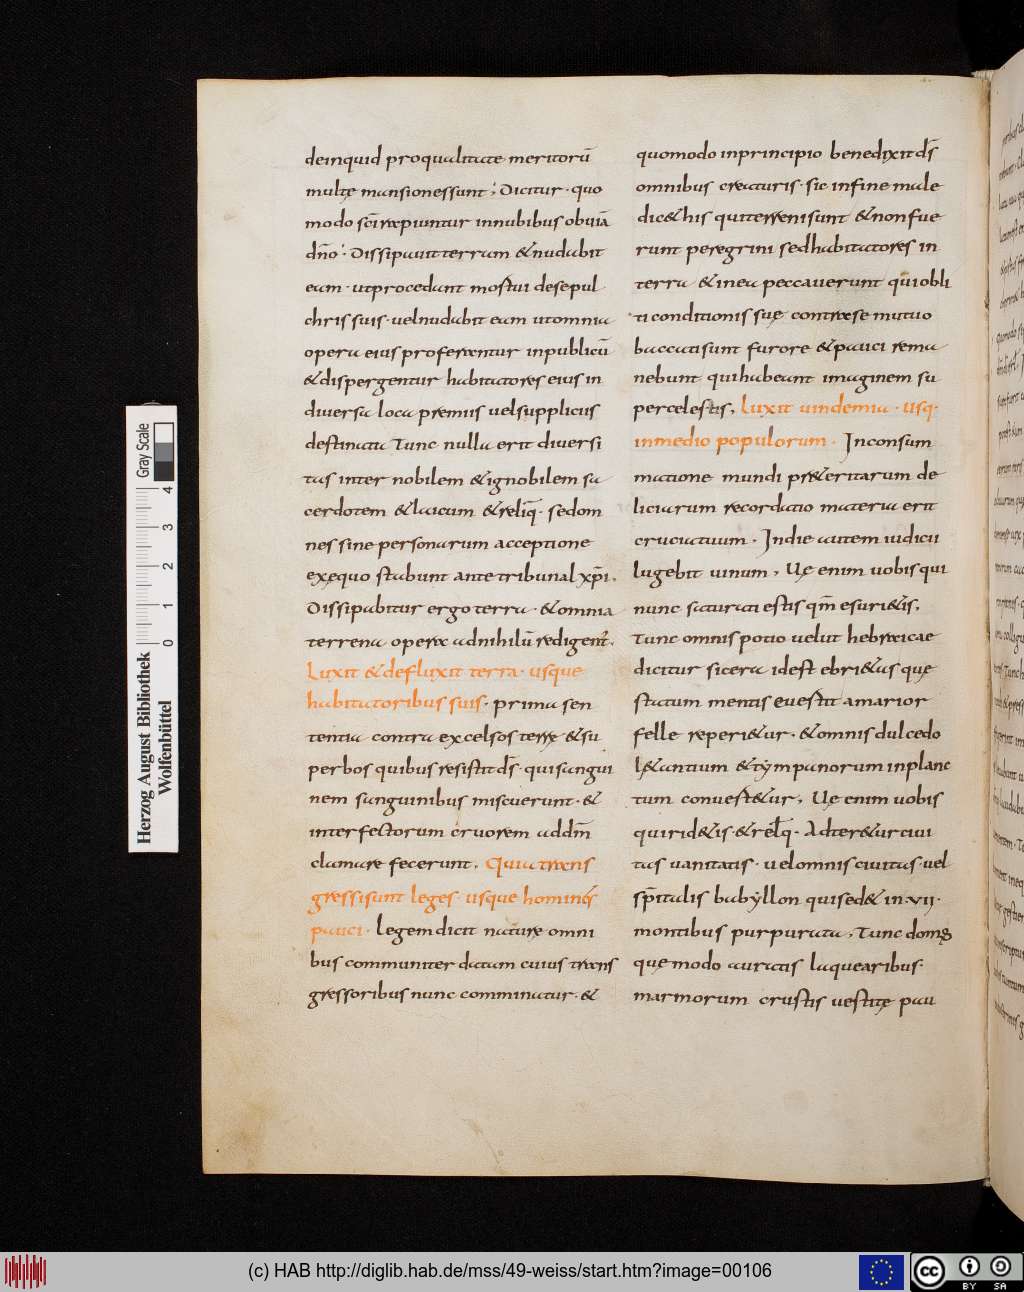 deinquid proqualitate meritorū
multę mansionessunt; Dicitur · quo
modo sc̄irapiuntur innubibus obuiā
dn̄o · Dissipauit terram &nudabit
eam · utprocedant mostui desepul
chris suis · uelnudabit eam utomnia
opera eius proferantur inpublicū
&dispergentur habitatores eius in
diuersa loca premiis uelsuppliciis
destinata Tunc nulla erit diuersi
tas inter nobilem &ignobilem sa
cerdotem &laicum &reliq̄ · sedom
nes sine personarum acceptione
exęquo stabunt ante tribunal xp̄i.
Dissipabitur ergo terra · &omnia
terrena opera adnihilū redigent̄.
Luxit &defluxit terra · usque
habitatoribus suis · prima sen
tentia contra excelsos terrę &su
perbos quibus resistit ds̄ · quisangui
nem sanguinibus miscuerunt · &
interfectorum cruorem addm̄
clamare fecerunt. Quia trans
gressisunt leges · usque homines
pauci · legem dicit naturę omni
bus communiter datam cuius trans
gressoribus nunc comminatur · &
quomodo inprincipio benedixit ds̄
omnibus creaturis · sic infine male
dic& his quiterrenisunt &nonfue
runt peregrini sedhabitatores in
terra &inea peccauerunt quiobli
ti conditionis suę contrase mutuo
baccatisunt furore &pauci rema
nebunt quihabeant imaginem su
percelestis, Luxit uindemia · usq·
inmedio populorum · Inconsum
matione mundi pr&eritarum de
liciarum recordatio materia erit
cruciatuum · Indie autem iudicii
lugebit uinum, Uę enim uobisqui
nunc saturati estis qm̄ esuri&is,
Tunc omnis potio uelut hebraicae
dicitur sicera idest ebri&as quę
statum mentis euestit amarior
felle reperi&ur · &omnis dulcedo
l&antium &tympanorum inplanc
tum conuest&ur, Uę enim uobis
quirid&is · &relq̄ · Adter&urciui
tas uanitatis · uelomnis ciuitas · uel
sp̄italis babyllon quised& in · vii ·
montibus purpurata, Tunc domus
quę modo auratis laquearibus ·
marmorum crustis uestitę pau
Herzog August Bibliothek
Wolfenbüttel
Gray Scale
0 1 2 3 4
(c) HAB http://diglib.hab.de/mss/49-weiss/start.htm?image=00106
cc BY SA